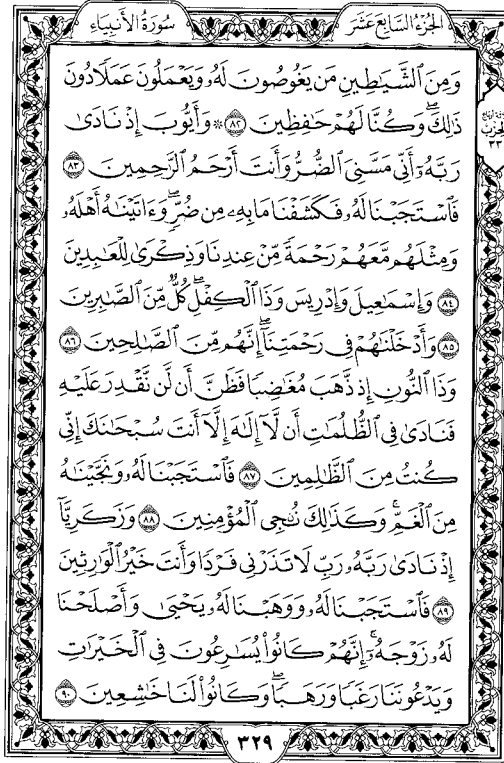 الجزء السابع عشر
سورة الأنبياء
وَمِنَ ٱلشَّيَٰطِينِ مَن يَغُوصُونَ لَهُۥ وَيَعْمَلُونَ عَمَلًا دُونَ
ذَٰلِكَ ۖ وَكُنَّا لَهُمْ حَٰفِظِينَ ٨٢ ۞ وَأَيُّوبَ إِذْ نَادَىٰ
رَبَّهُۥٓ أَنِّى مَسَّنِىَ ٱلضُّرُّ وَأَنتَ أَرْحَمُ ٱلرَّٰحِمِينَ ٨٣
فَٱسْتَجَبْنَا لَهُۥ فَكَشَفْنَا مَا بِهِۦ مِن ضُرٍّ ۖ وَءَاتَيْنَٰهُ أَهْلَهُۥ
وَمِثْلَهُم مَّعَهُمْ رَحْمَةً مِّنْ عِندِنَا وَذِكْرَىٰ لِلْعَٰبِدِينَ
٨٤ وَإِسْمَٰعِيلَ وَإِدْرِيسَ وَذَا ٱلْكِفْلِ ۖ كُلٌّ مِّنَ ٱلصَّٰبِرِينَ
٨٥ وَأَدْخَلْنَٰهُمْ فِى رَحْمَتِنَآ ۖ إِنَّهُم مِّنَ ٱلصَّٰلِحِينَ ٨٦
وَذَا ٱلنُّونِ إِذ ذَّهَبَ مُغَٰضِبًا فَظَنَّ أَن لَّن نَّقْدِرَ عَلَيْهِ
فَنَادَىٰ فِى ٱلظُّلُمَٰتِ أَن لَّآ إِلَٰهَ إِلَّآ أَنتَ سُبْحَٰنَكَ إِنِّى
كُنتُ مِنَ ٱلظَّٰلِمِينَ ٨٧ فَٱسْتَجَبْنَا لَهُۥ وَنَجَّيْنَٰهُ
مِنَ ٱلْغَمِّ ۚ وَكَذَٰلِكَ نُۨجِى ٱلْمُؤْمِنِينَ ٨٨ وَزَكَرِيَّآ
إِذْ نَادَىٰ رَبَّهُۥ رَبِّ لَا تَذَرْنِى فَرْدًا وَأَنتَ خَيْرُ ٱلْوَٰرِثِينَ
٨٩ فَٱسْتَجَبْنَا لَهُۥ وَوَهَبْنَا لَهُۥ يَحْيَىٰ وَأَصْلَحْنَا
لَهُۥ زَوْجَهُۥٓ ۚ إِنَّهُمْ كَانُوا۟ يُسَٰرِعُونَ فِى ٱلْخَيْرَٰتِ
وَيَدْعُونَنَا رَغَبًا وَرَهَبًا ۖ وَكَانُوا۟ لَنَا خَٰشِعِينَ ٩٠
الحزب
٣٣
٣٢٩